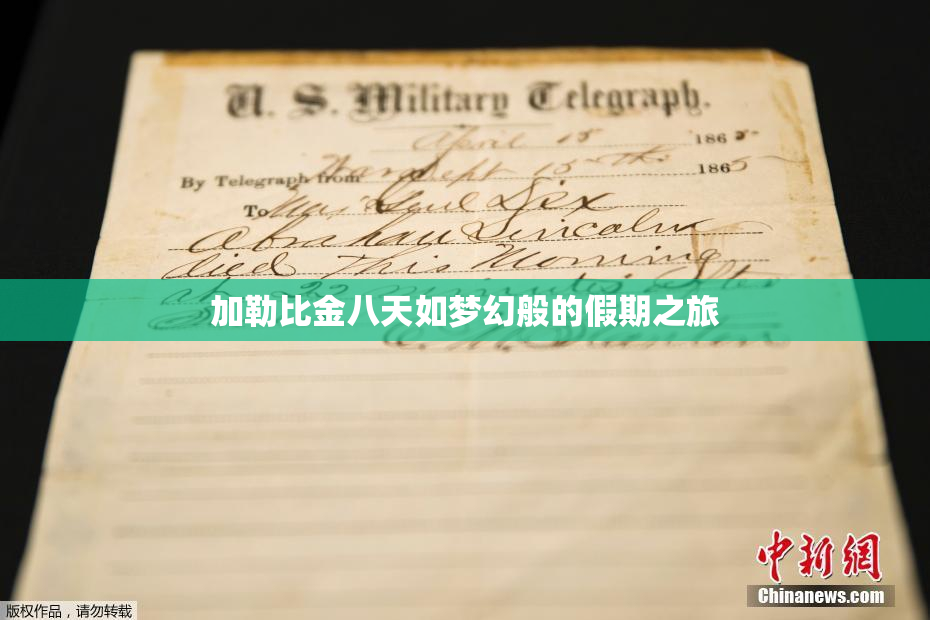 U. S. Military Telegraph.
April 15 1865
By Telegraph from War Dept 15th 1865
To Maj Genl Dix
Abraham Lincoln
died This Morning
at 22 minutes after
加勒比金八天如梦幻般的假期之旅
E. M. Stanton
中新网
Chinanews.com
版权作品，请勿转载